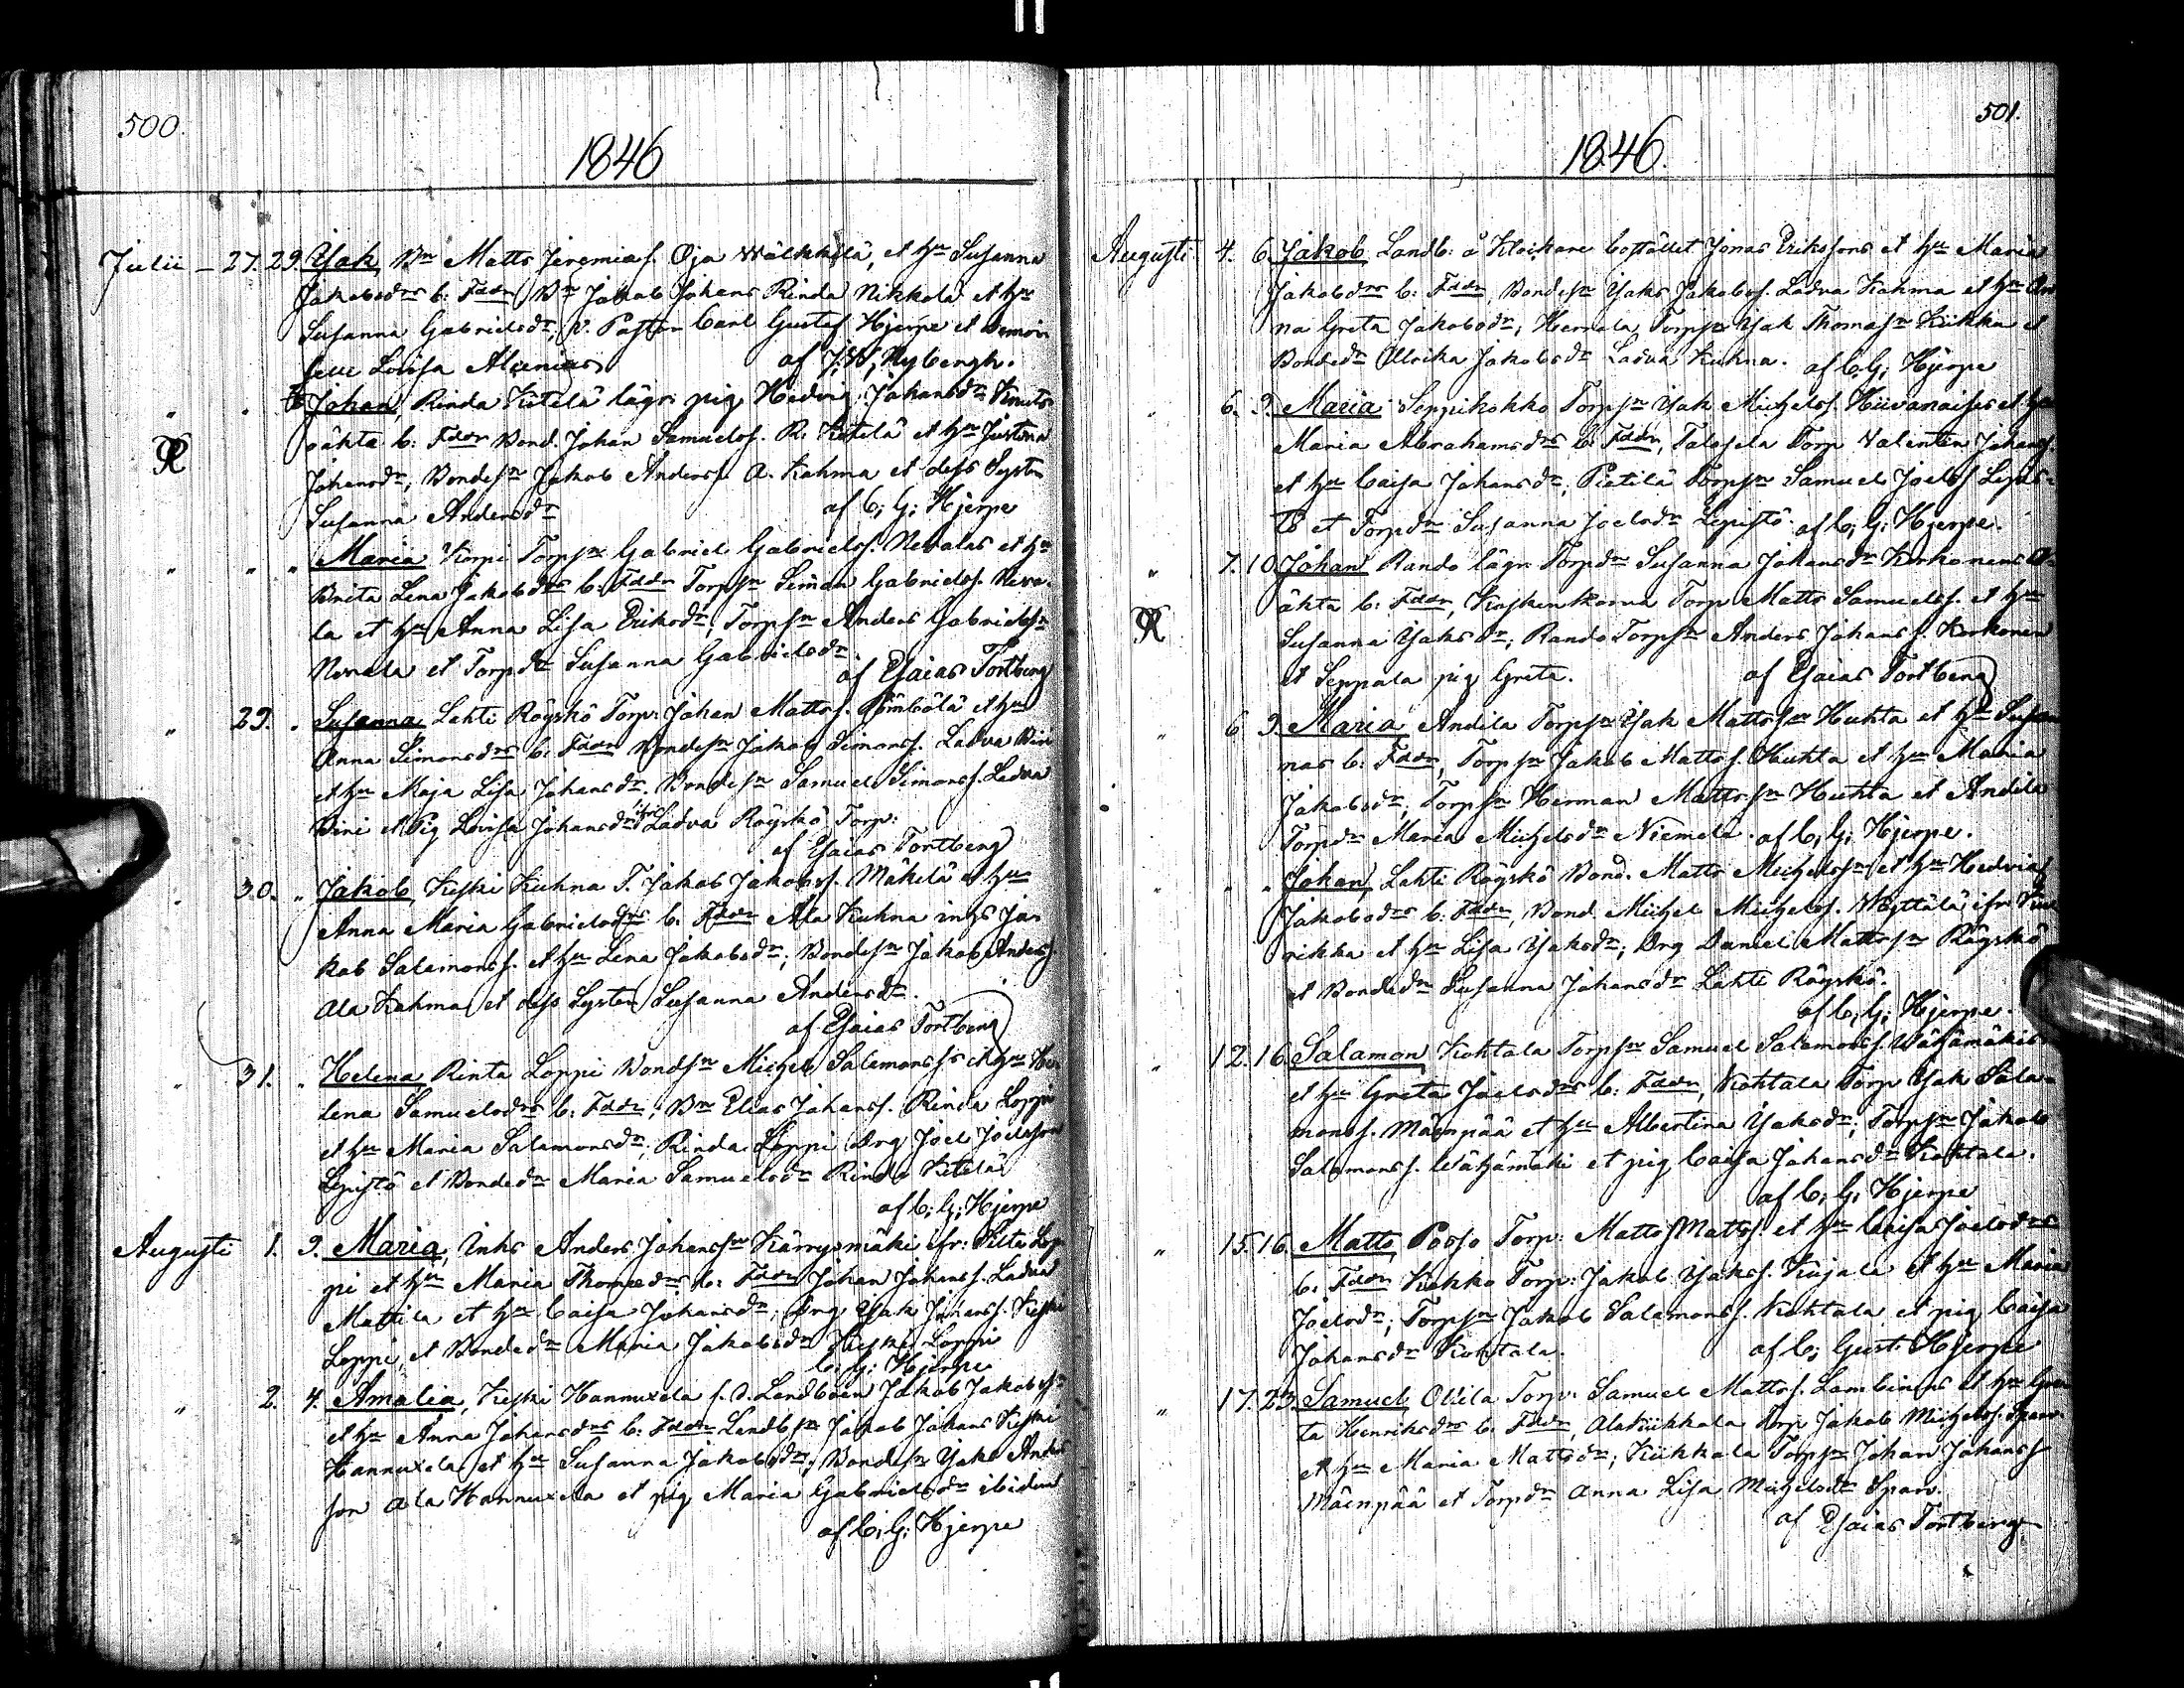 500.
1846
Julii – 27. 29. Isak, Bn Matts Jeremias. Oja Wälikkilä, et hu Susanna
Jakobsdrs b: Fddr Bn Jakob Johans Rinda Nikkola et hu
Susanna Gabrielsdr, v. Pastor Carl Gustaf Hjerpe et Demoi
selle Lovisa Alcenius af J: W: Nybergh.
" " Johan, Rinda Kitelä lägr: pig Hedvig Johansdr Knuts
oäkta b: Fddr Bond. Johan Samuelss. R. Kitelä et hu Justina
Johansdr, Bondesn Jakob Anderss. A. Kahma et dess Syster
Susanna Andersdr af C; G; Hjerpe
" " " Maria Korpi Torpsn Gabriel Gabrielss. Nevalas et hu
Brita Lena Jakobsdrs b: Fddr Torpsn Simon Gabrielss. Neva-
la et hu Anna Lisa Eriksdr; Torpsn Anders Gabrielsn
Nevala et Torpdr Susanna Gabrielsdr.
af Esaias Tortberg
" 29. " Susanna, Lahti Röyskö Torp: Johan Mattss. Pömbölä et hu
Anna Simonsdrs b: Fddr Bondesn Jakob Simonss. Ladva Kini
et hu Maja Lisa Johansdr. Bondesn Samuel Simonss. Ladva
Kini et Pig Lovisa Johansdr ifr Ladva Röyskö Torp:
af Esaias Tortberg
" 30. " Jakob, Keski Kuhna T. Jakob Jakobss. Mäkelä et hu
Anna Maria Gabrielsdrs b: Fddr Ala Kuhna inhs Ja-
kob Salamonss. et hu Lena Jakobsdr; Bondesn Jakob Anderss
Ala Kahma et dess Syster Susanna Andersdr.
af Esaias Tortberg
" 31. " Helena, Rinta Loppi Bondsn Michel Salamonss et hu He-
lena Samuelsdrs b: Fddr; Bn Elias Johanss. Rinda Loppi
et hu Maria Salamonsdr; Rinda Loppi Drg Joel Joelsson
Lepistö et Bondedr Maria Samuelsdr Rinda Kitelä
af C; G; Hjerpe
Augusti 1. 9. Maria, Inhs Anders Johanssn Kärrysmäki ifr: Lop-
pi et hu Maria Thomasdrs b: Fddr Johan Johanss. Ladva
Mattila et hu Caisa Johansdr; Drg Isak Johanss. Keski
Loppi, et Bondedr Maria Jakobsdr Keski Loppi
C; G; Hjerpe
" 2. 4. Amalia, Keski Hannuxela f. d. Landboen Jakob Jakobss
et hu Anna Johansdrs b: Fddr Landbsn Jakob Johans Keski
Hannuxela et hu Susanna Jakobsdr; Bondesn Isak Anders
son Ala Hannuxela et pig Maria Gabrielsdr ibidem
af C; G; Hjerpe
501.
1846.
Augusti 4. 6. Jakob, Landb: å Klockare bostället Jonas Erikssons et hu Maria
Jakobsdrs b: Fddr, Bondesn Isaks Jakobss. Ladva Kahma et hu An
na Greta Jakobsdr; Herrala Torpsn Isak Thomassn Kiikka et
Bondedr Ulrika Jakobsdr Ladva Kuhna. af C. G; Hjerpe
" 6. 9. Maria Seppikokko Torpsn Isak Michelss. Hiivanaises et hu
Maria Abrahamsdrs b: Fddr, Talosela Torp Valentin Johanss.
et hu Caisa Johansdr; Pietilä Torpsn Samuel Joelss Lepis-
tö et Torpdr Susanna Joelsdr Lepistö. af C; G; Hjerpe.
" 7. 10. Johan Rando lägr Torpdr Susanna Johansdr Korkonens o-
äkta b: Fddr, Koskenkorva Torp Matts Samuelss. et hu
Susanna Isaksdr; Rando Torpsn Anders Johanss. Korkonen
et Seppala pig Greta. af Esaias Tortberg
" 6 9. Maria Andila Torpsn Isak Mattssn Huhta et hu Susan
nas b: Fddr, Torpsn Jakob Mattss. Huhta et hu Maria
Jakobsdr; Torpsn Herman Mattssn Huhta et Andila
Torpdr Maria Michelsdr Niemelä. af C; G; Hjerpe.
" " " Johan, Lahti Röyskö Bond. Matts Michelssn et hu Hedvig
Jakobsdrs b: Fddr, Bond Michel Michelss. Wäyttälä ifr
rikka et hu Lisa Isaksdr; Drg Daniel Mattssn Röyskö
et Bondedr Susanna Johansdr Lahti Röyskö.
af C; G; Hjerpe.
" 12. 16. Salamon Kohtala Torpsn Samuel Salamonss. Wähämäkis
et hu Greta Joelsdrs b: Fddr, Kohtala Torp Isak Sala-
monss. Mäenpää et hu Albertina Isaksdr; Torpsn Jakob
Salamonss. Wähämäki et pig Caisa Johansdr Kohtala.
af C; G; Hjerpe
" 15. 16. Matts, Posso Torp: Matts Mattss. et hu Caisa Joelsdrs
b: Fddr Kokko Torp: Jakob Isakss. Kujala et hu Maria
Joelsdr; Torpsn Jakob Salamonss. Kohtala et pig Caisa
Johansdr Kohtala. af C; Gust: Hjerpe
" 17. 23. Samuel Ollila Torp: Samuel Mattss. Lambinens et hu Gre
ta Henriksdrs b: Fddr, Alakiikkala Torp Jakob Michelss. Sparv.
et hu Maria Mattsdr; Kiikkala Torpsn Johan Johanss
Mäenpää et Torpdr Anna Lisa Michelsdr Sparv.
af Esaias Tortberg